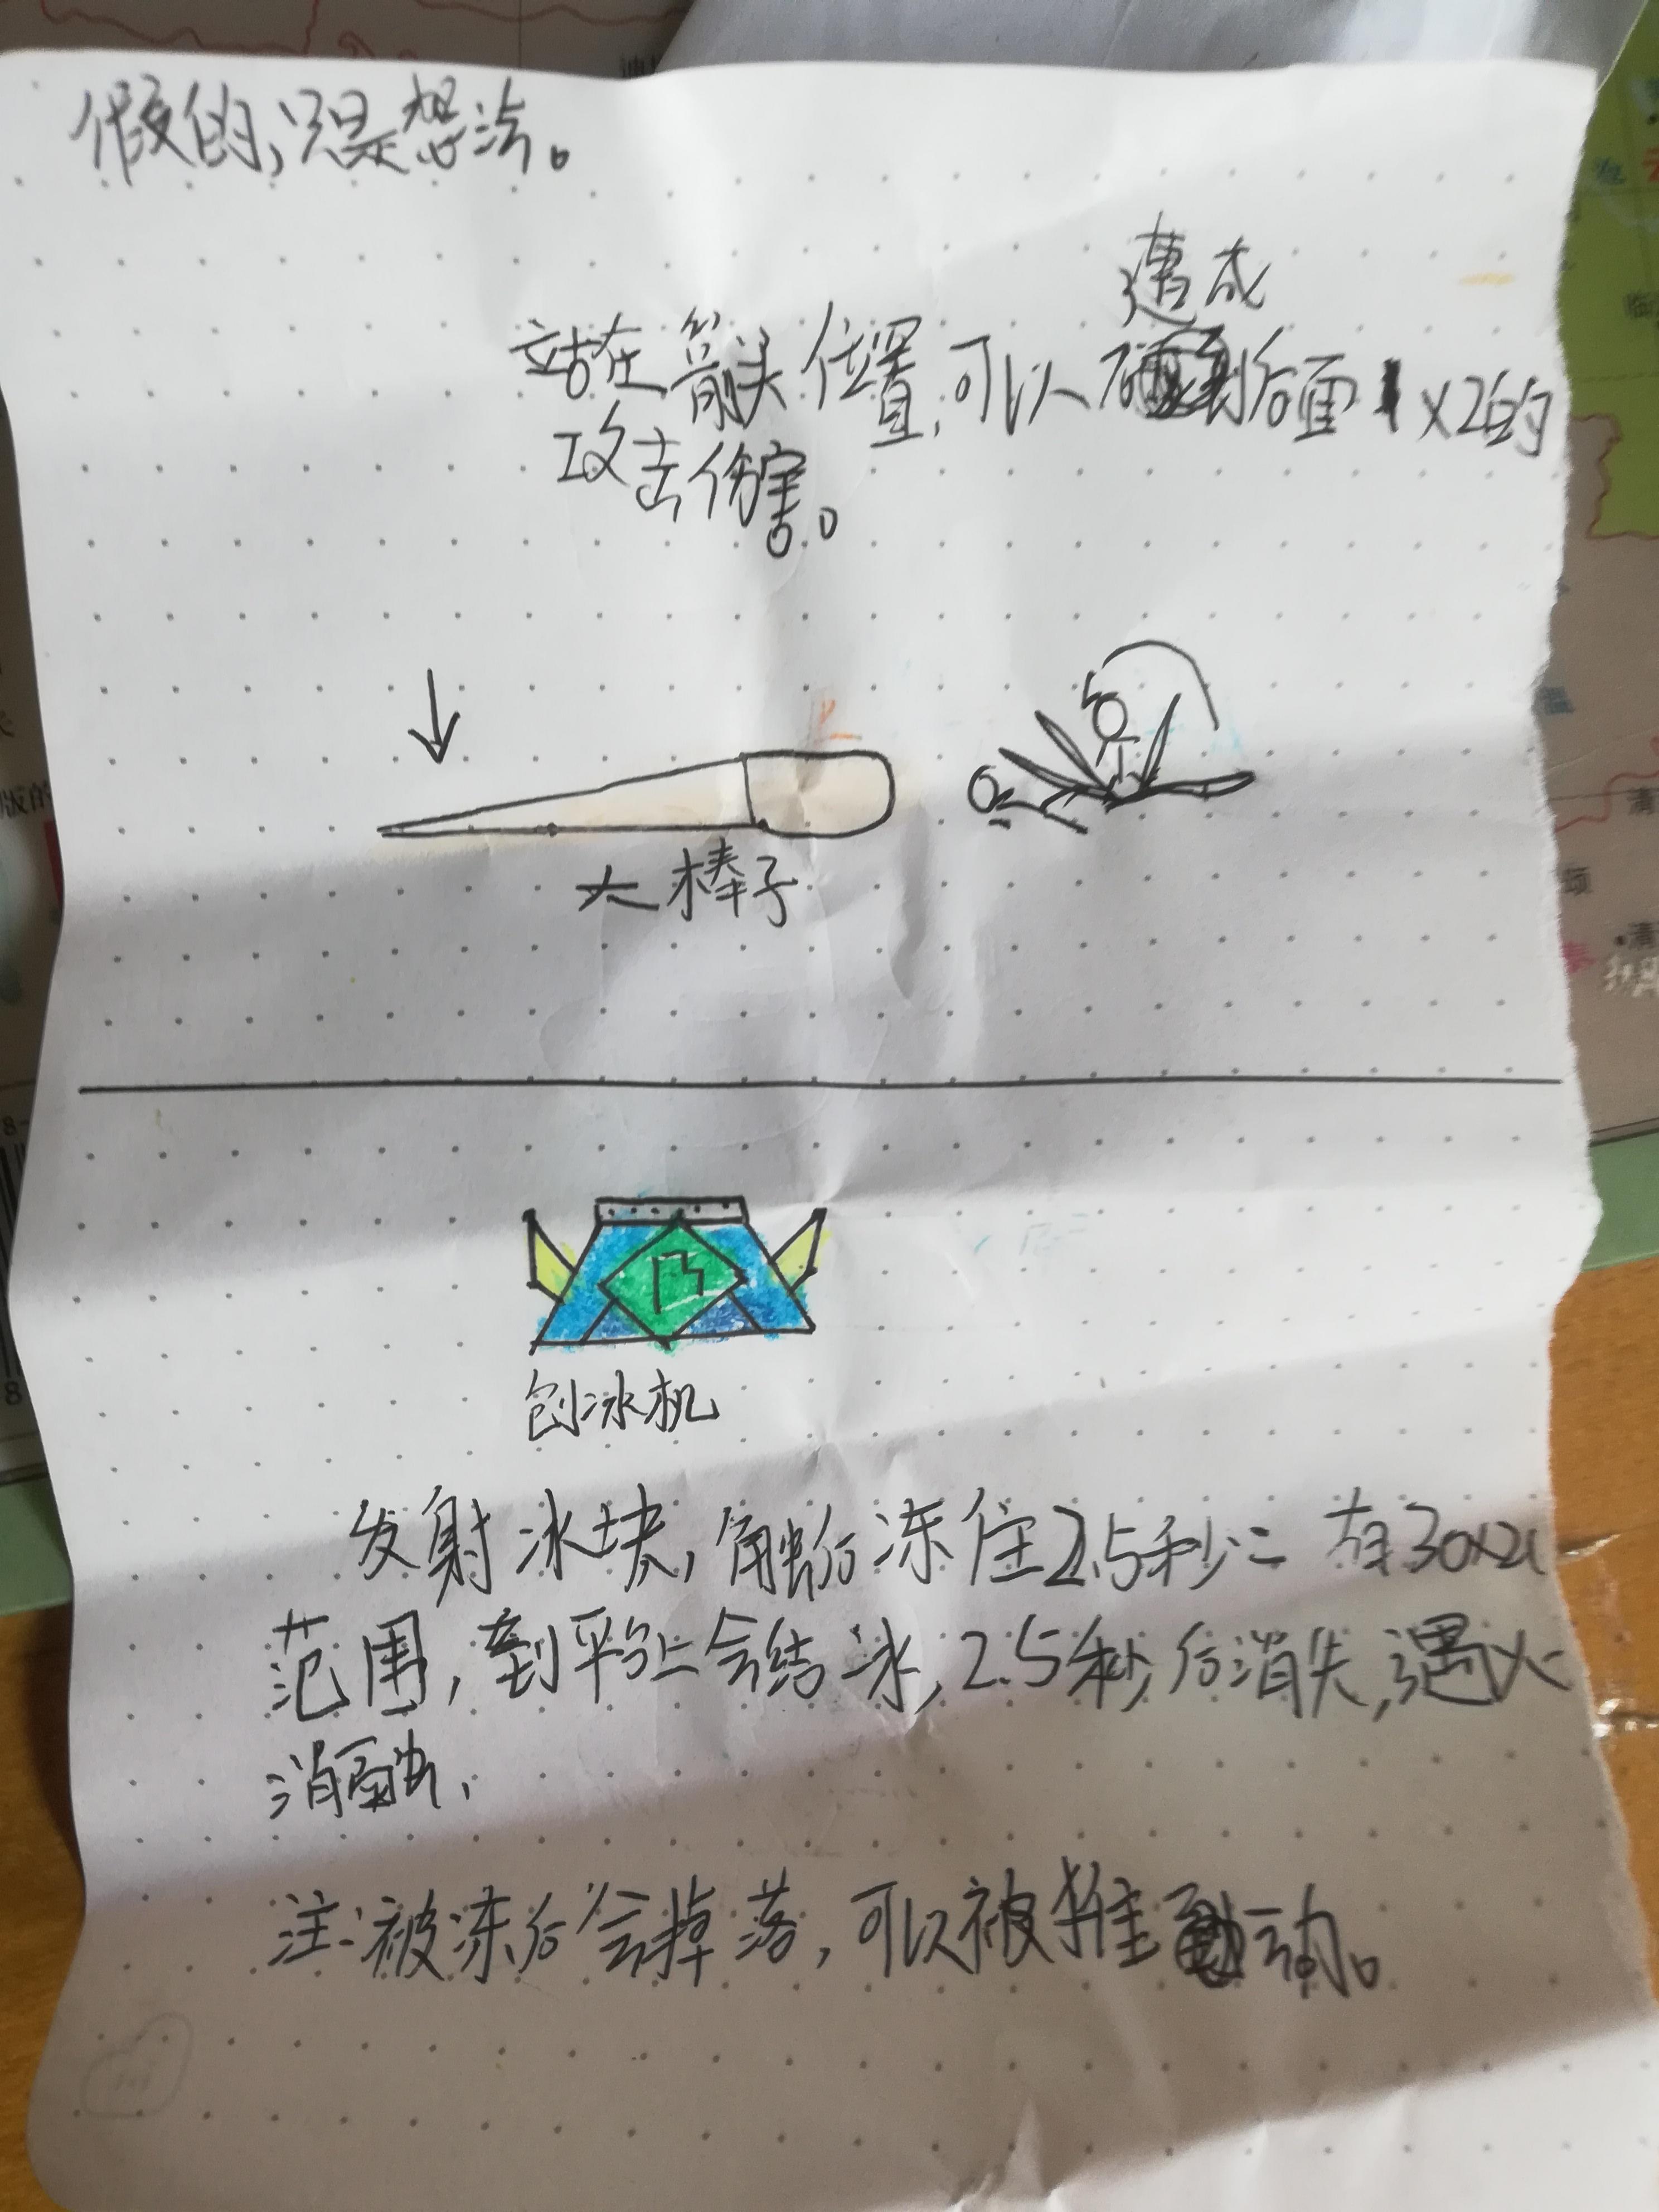 假的,只是想法。
造成
站在箭头位置,可以后面x2的
攻击伤害。
大棒子
刨冰机
发射冰块,触后冻住2.5秒
范围,到平台上会结冰,2.5秒后消失,遇火
消融,
注:被冻后会掉落,可以被推动。